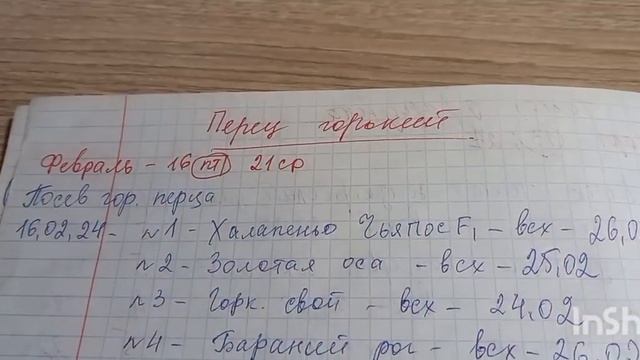 Перец горький
Февраль - 16 пт 21 ср
Посев гор. перца
16,02,24 - n1 - Халапеньо Чьяпос F1 - всх - 26,0
n2 - Золотая оса - всх - 25,02
n3 - Горк. свой - всх - 24,02
n4 - Бараний рог - всх - 26,02
InSh